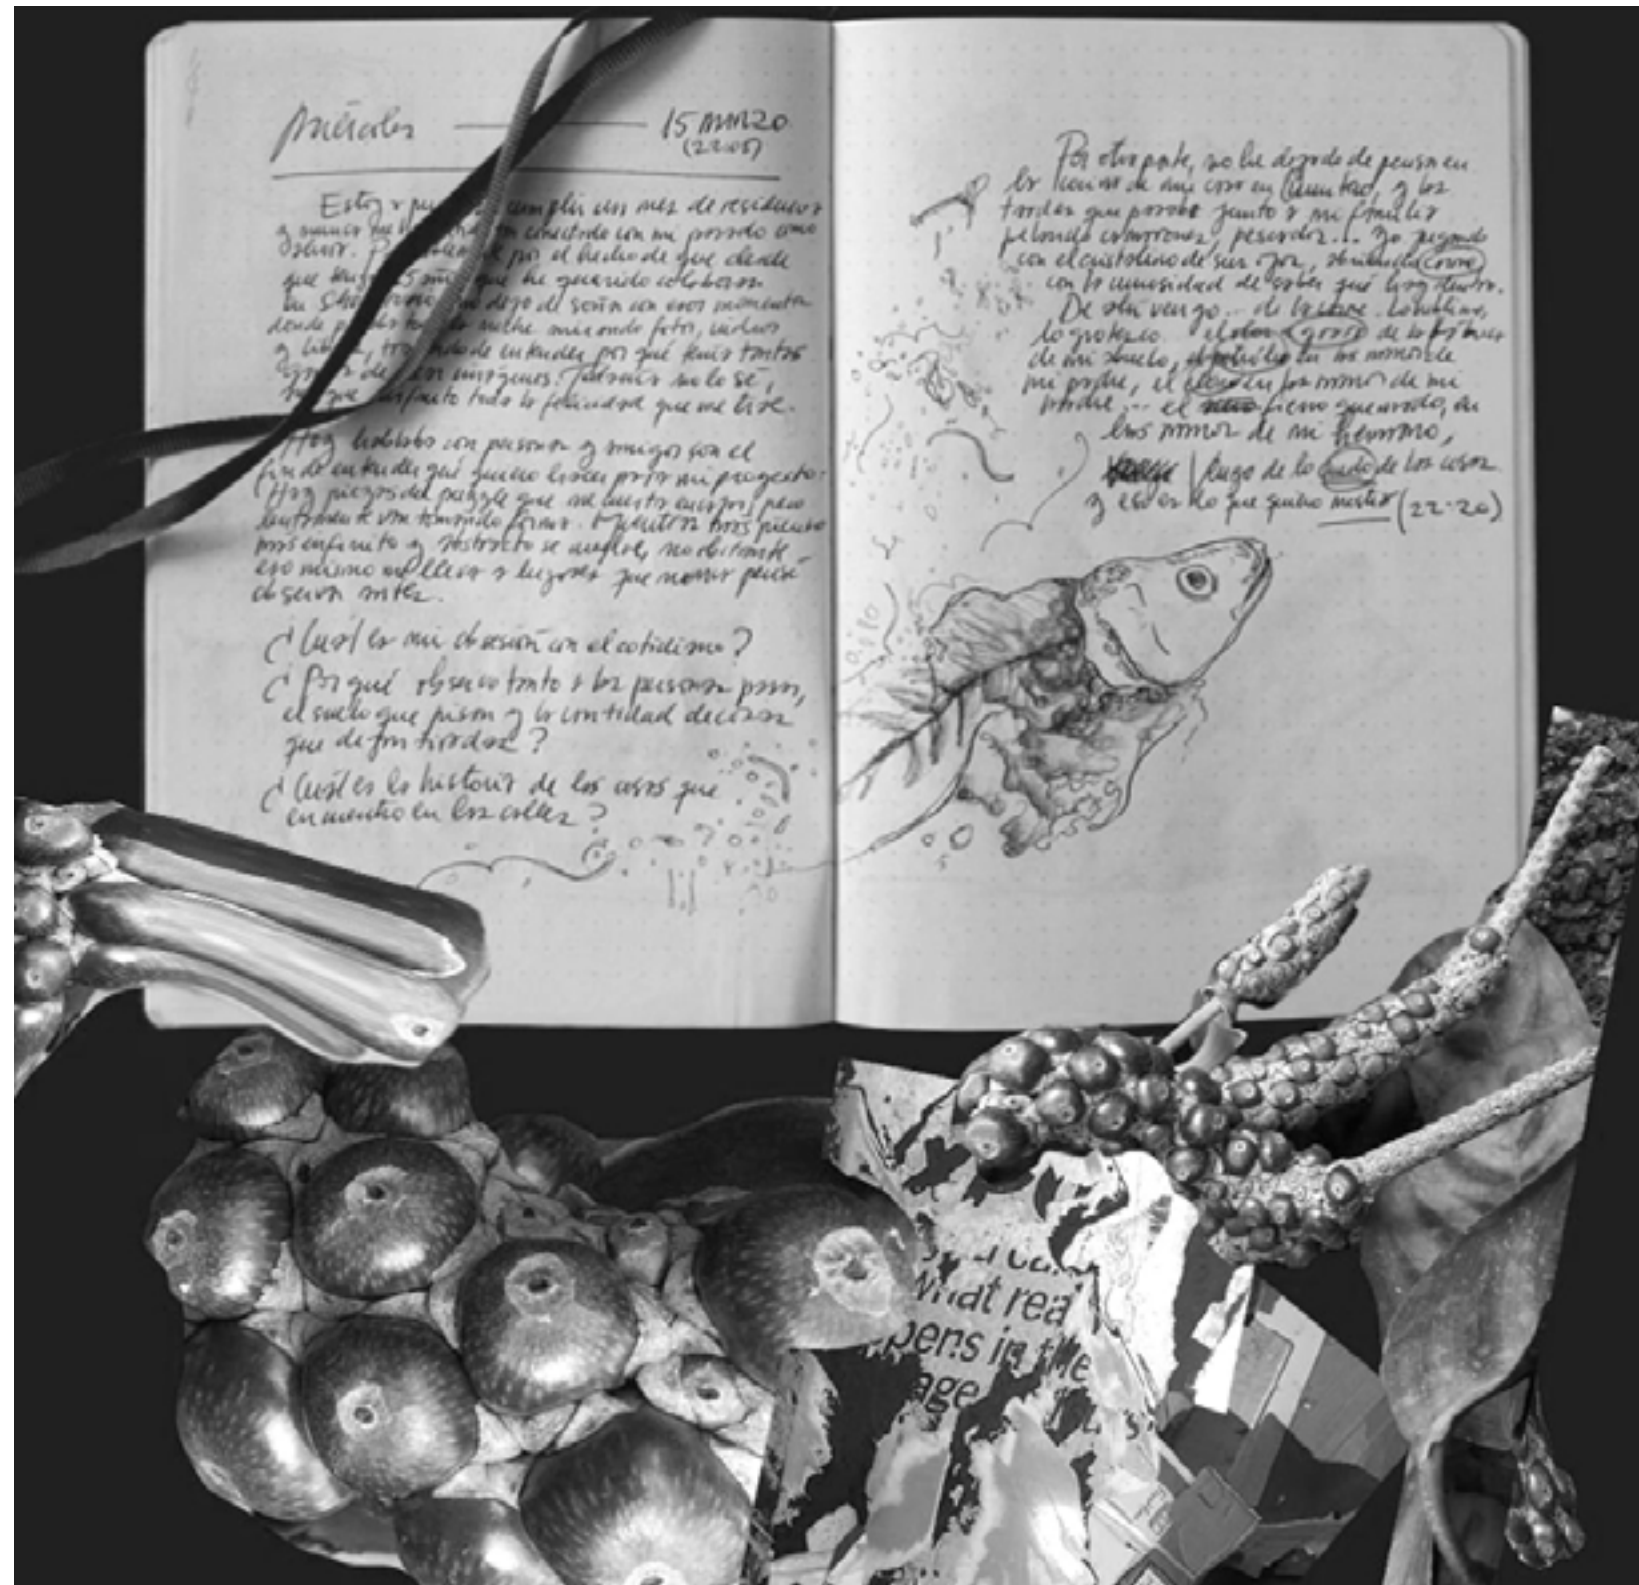 miércoles — 15 MARZO
(22:05)
Estoy a cumplir un mes de residencia
y nunca me conectado con mi pasado como
ahora. por el hecho de que desde
que tengo 15 que he querido colaborar
en dejo de soñar con esos momentos
donde noche mirando fotos, videos
y de entender por qué tenía tantas
ganas de imágenes. Todavía no lo sé,
que disfruto toda la felicidad que me trae.
Hoy hablaba con personas y amigos con el
fin de entender qué quiero hacer para mi proyecto.
Hay piezas del puzzle que me cuesta encajar, pero
lentamente van tomando forma. mientras más pienso
más infinito y abstracto se vuelve, no obstante
eso mismo me lleva a lugares que nunca pensé
observar antes.
¿Cuál es mi obsesión con el cotidiano?
¿Por qué observo tanto a las personas pasar,
el suelo que pisan y la cantidad de cosas
que dejan tiradas?
¿Cuál es la historia de las cosas que
encuentro en las calles?
Por otra parte, no he dejado de pensar en
la cocina de mi casa en y las
tardes que pasaba junto a mi familia
pelando camarones, pescados... yo jugando
con el cristalino de sus ojos, abriendo carne
con la curiosidad de saber qué hay dentro.
De ahí vengo... de la carne. Lo sublime,
lo grotesco. el olor grasa de las
de mi abuelo, el petróleo en las manos de
mi padre, el cloro en las manos de mi
madre... el fierro quemado, en
las manos de mi hermano,
| luego de lo crudo de las cosas
y eso es lo que quiero mostrar (22:20)
What rea
pens in the
age